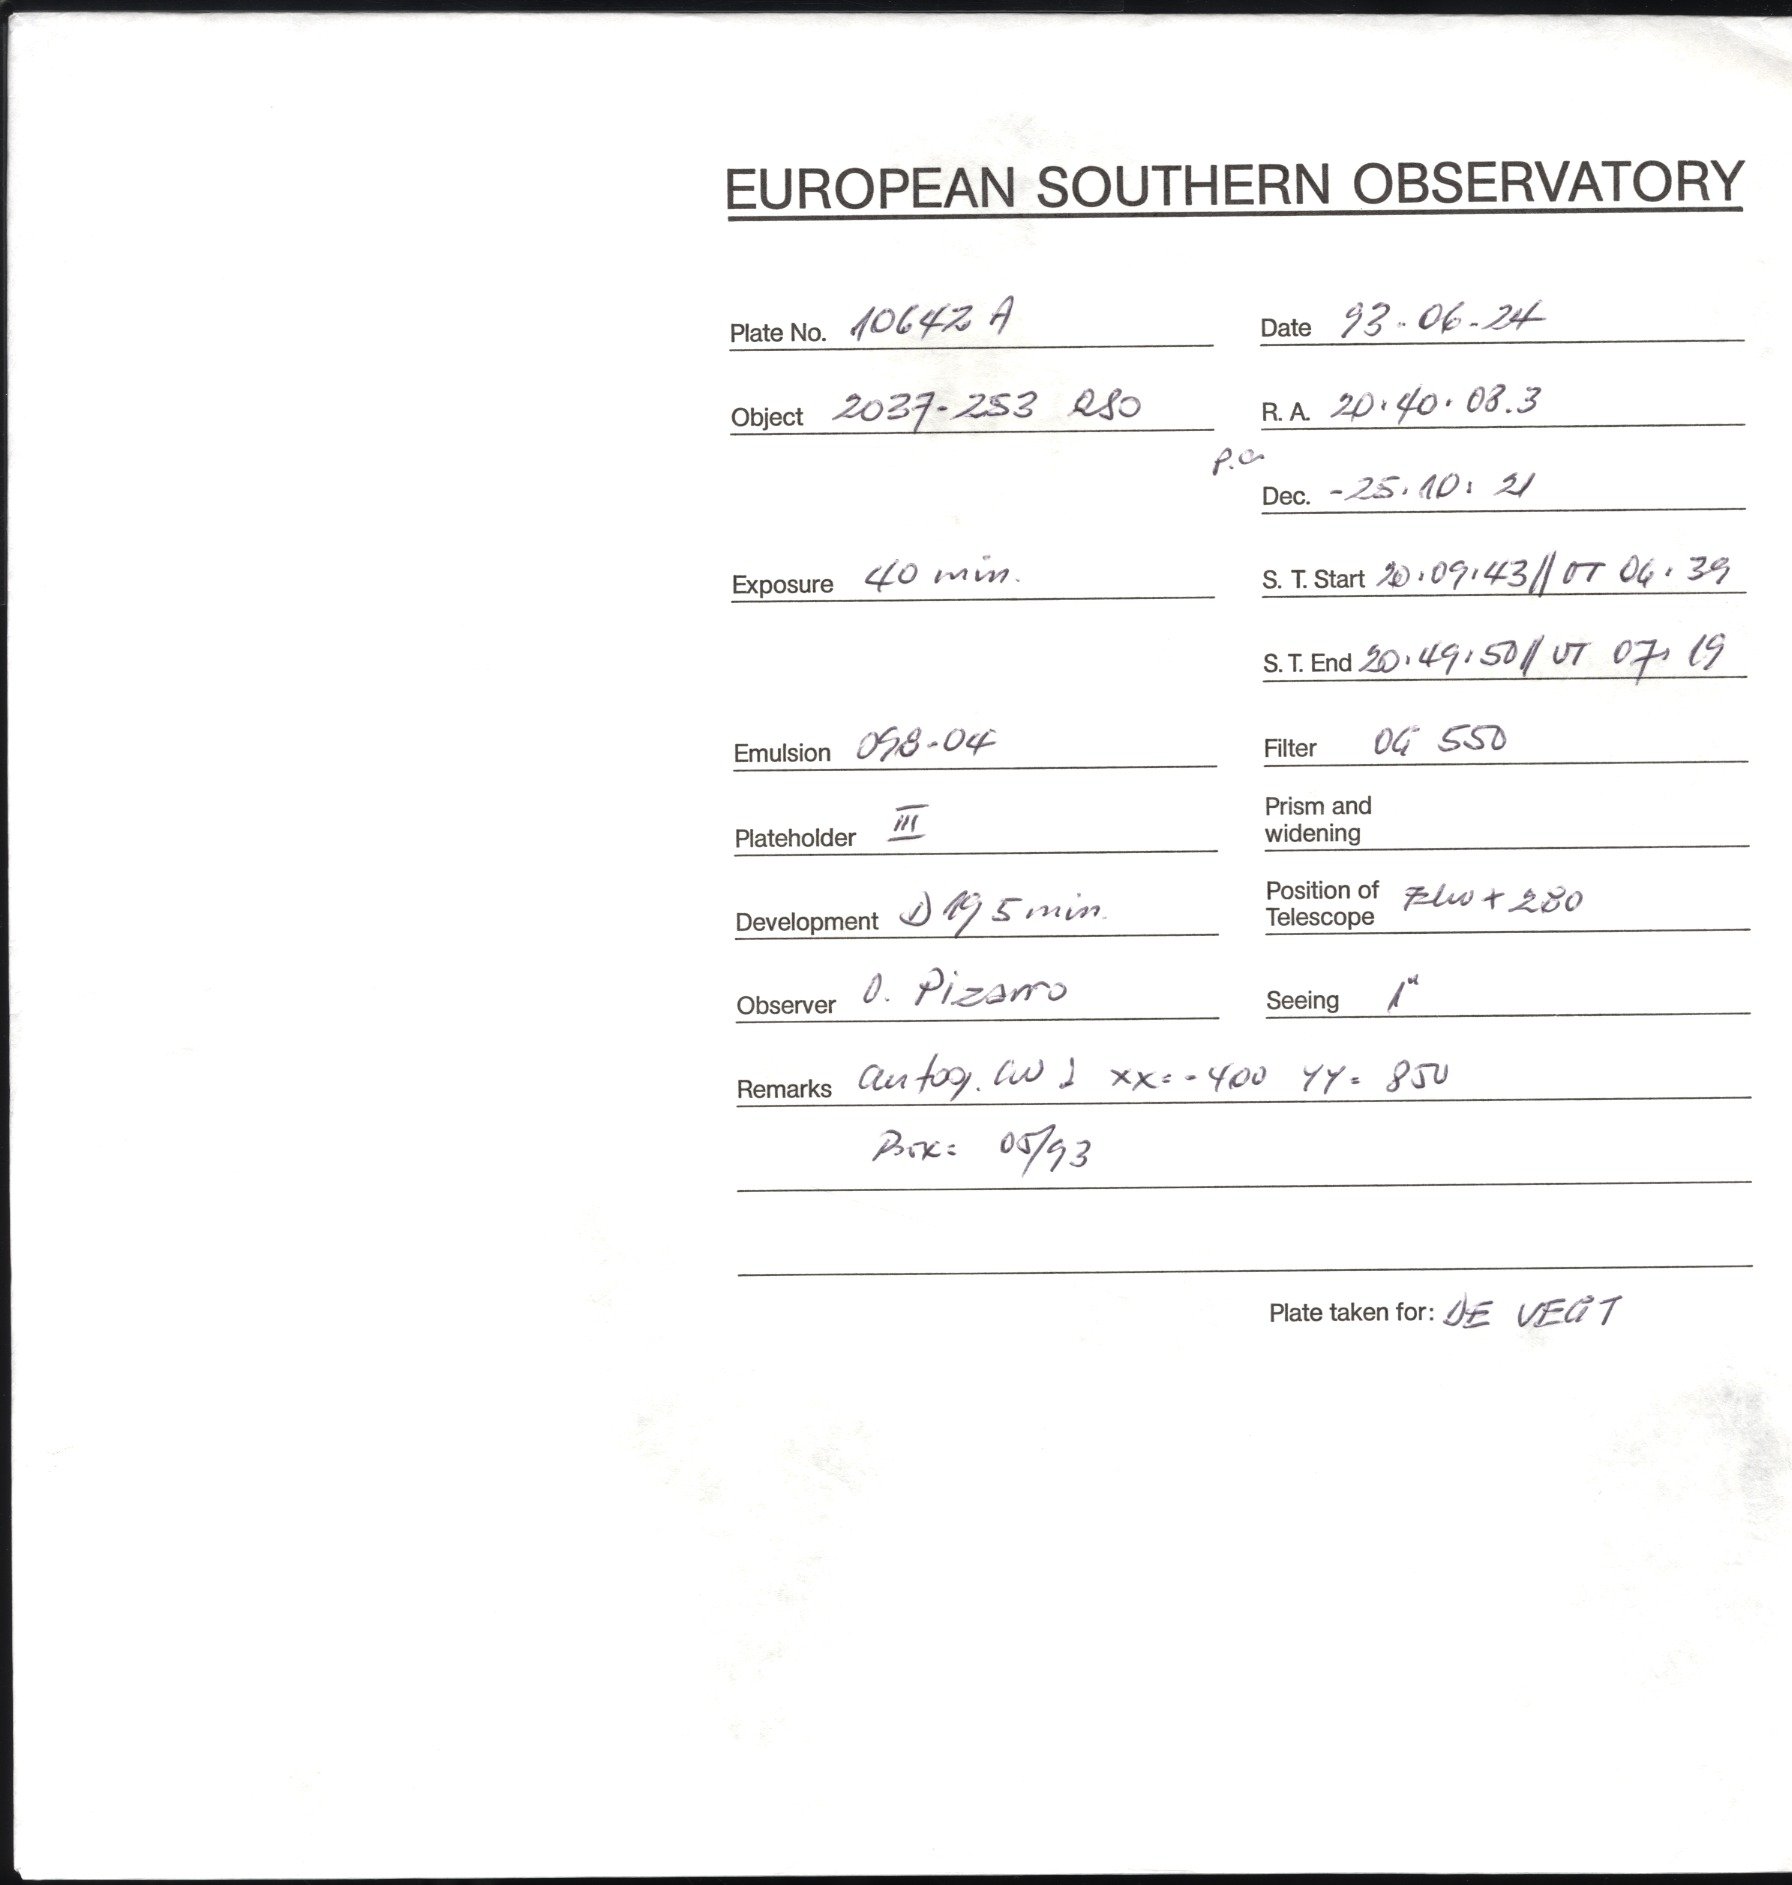 EUROPEAN SOUTHERN OBSERVATORY
Plate No. 10642 A
Date 93-06-24
Object 2037-253 QSO
R. A. 20.40.08.3
Dec. -25.10: 21
Exposure 40 min.
S. T. Start 20:09:43// UT 06:39
S. T. End 20:49:50// UT 07:19
Emulsion 098-04
Filter OG 550
Plateholder III
Prism and
widening
Development D 19 5 min.
Position of
Telescope + 280
Observer O. Pizarro
Seeing 1"
Remarks autog. xx=-400 YY= 850
Box: 05/93
Plate taken for: DE VEGT